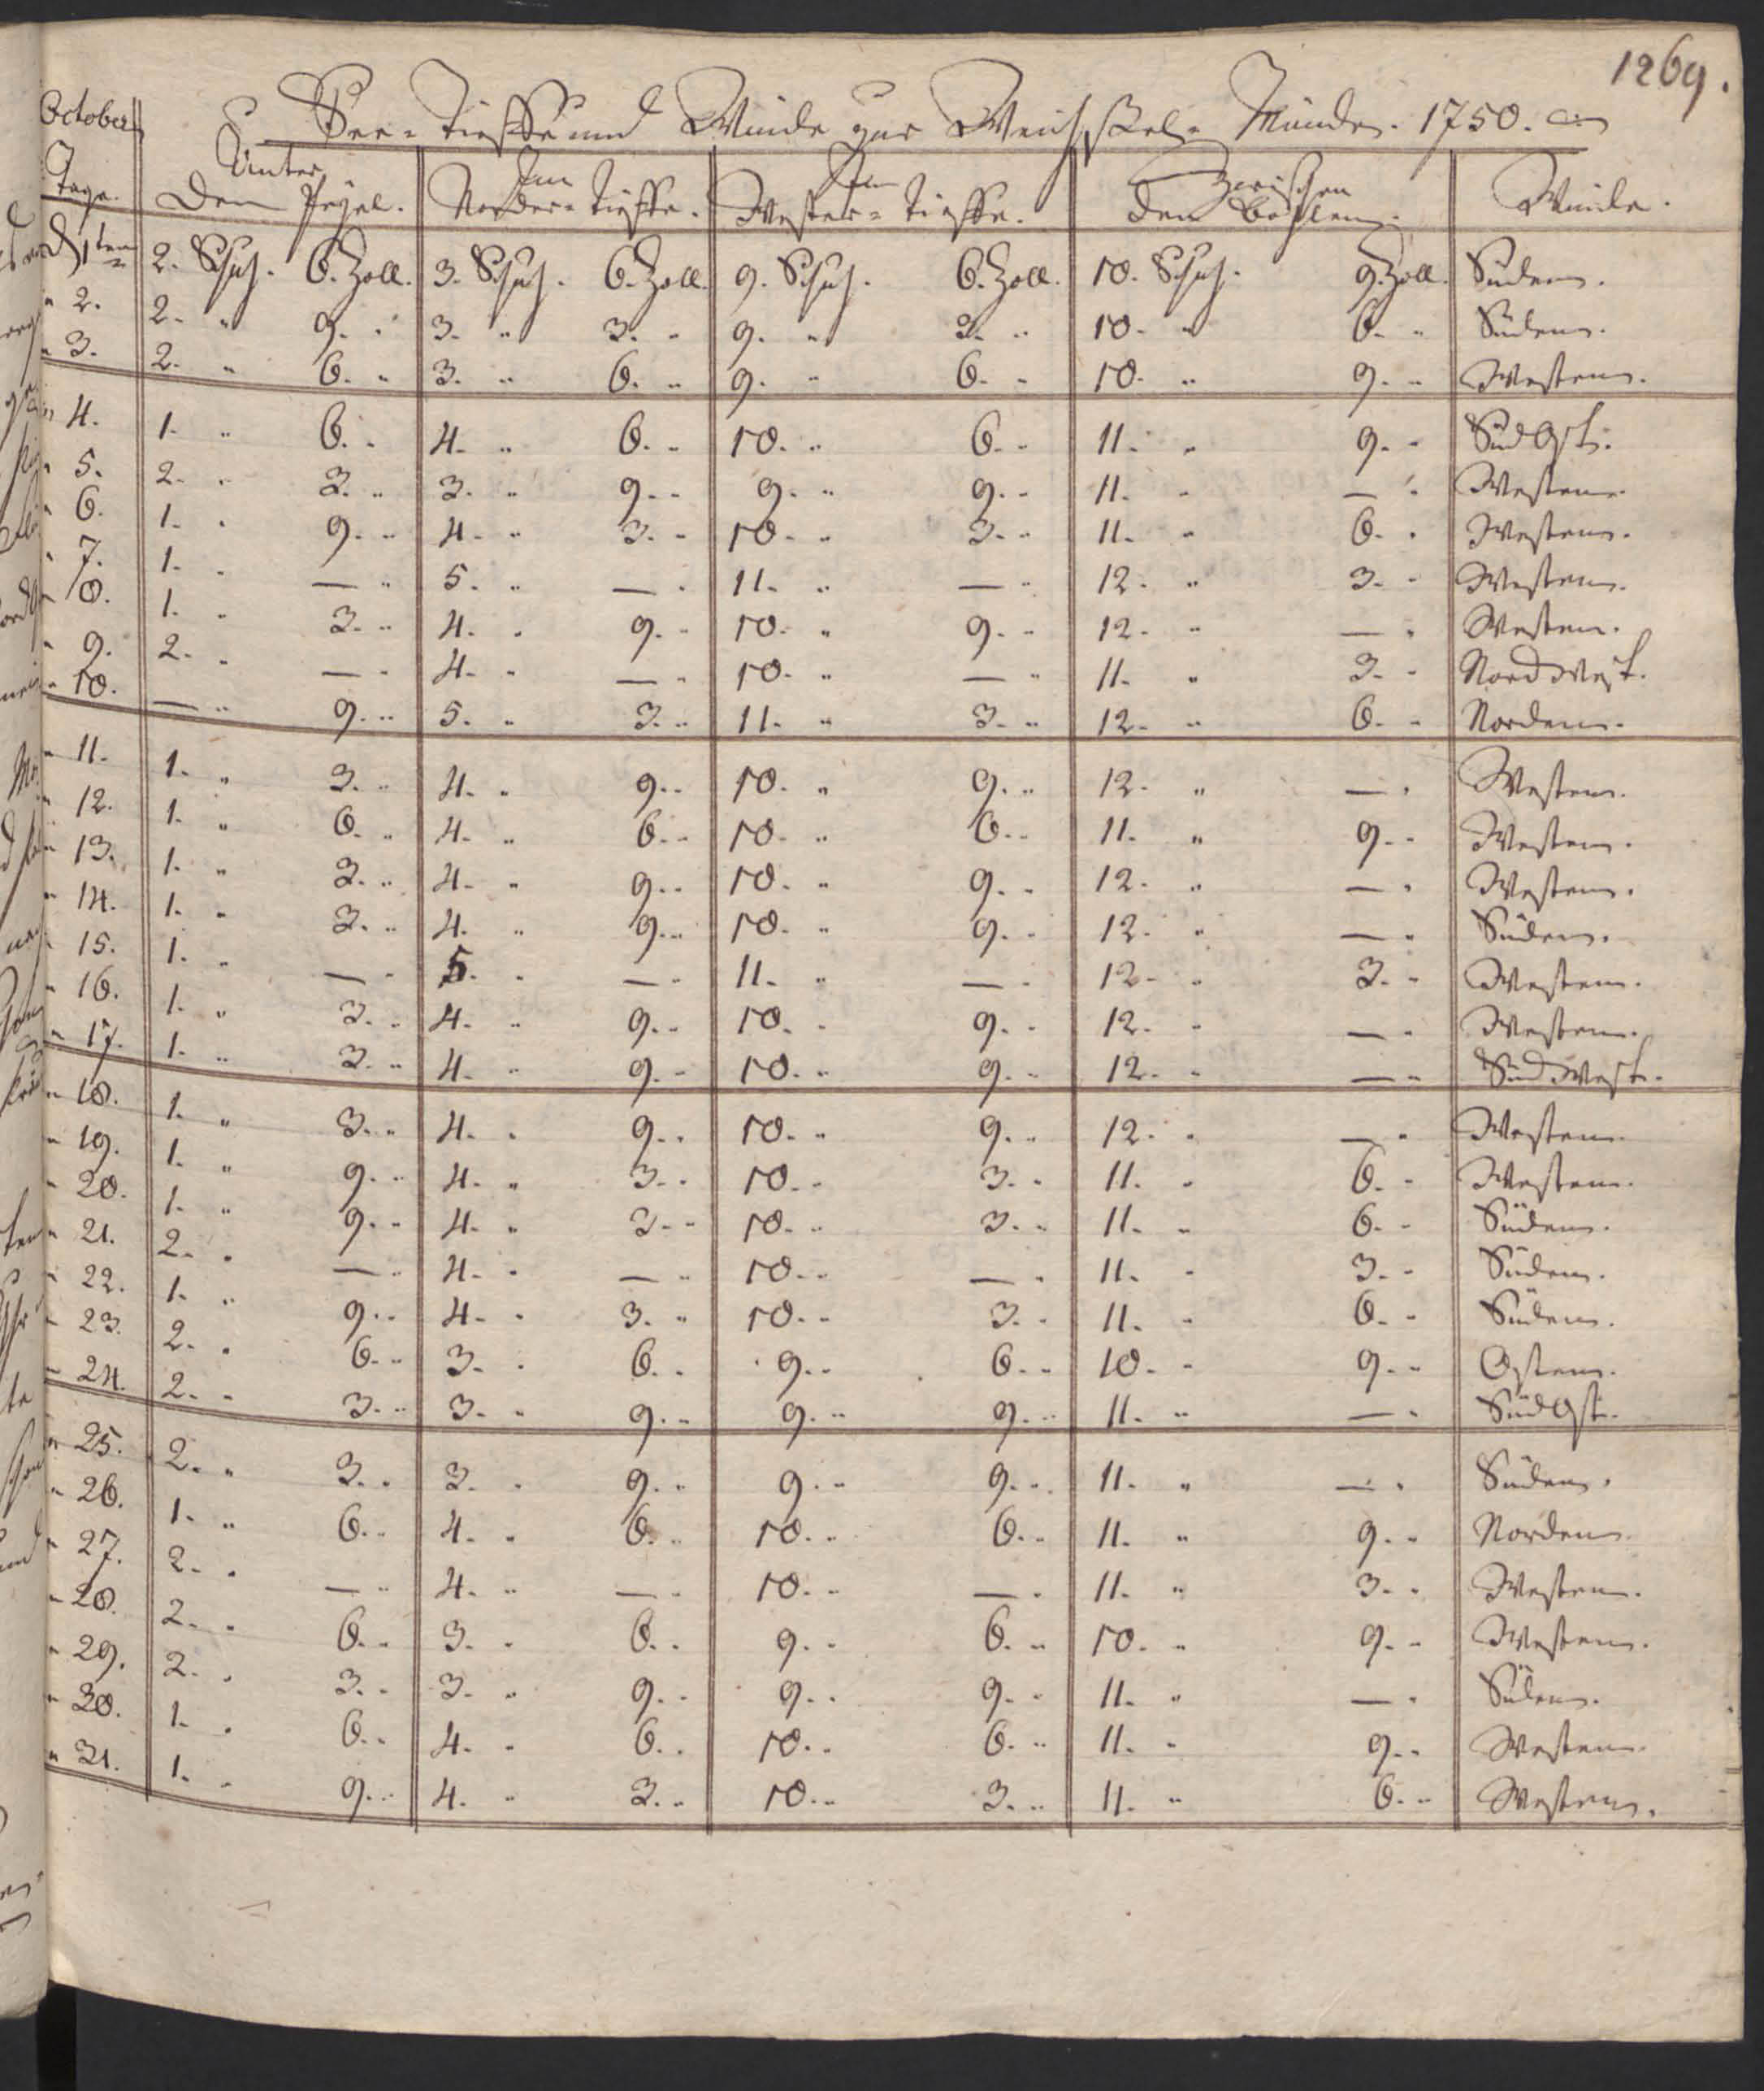 1269.
October
See-Tieffe und Winde zur Weichßel-Münde. 1750.
Tage. Unter dem Pegel. Im Norder-Tieffe. Im Wester-Tieffe. Zwischen den Bohlen. Winde.
d 1ten 2. Schuh. 6. Zoll. 3. Schuh. 6. Zoll. 9. Schuh. 6. Zoll. 10. Schuh. 9. Zoll. Süden.
" 2. 2. " 9. " 3. " 3. " 9. " 3. " 10. " 6. " Süden.
" 3. 2. " 6. " 3. " 6. " 9. " 6. " 10. " 9. " Westen.
" 4. 1. " 6. " 4. " 6. " 10. " 6. " 11. " 9. " SüdOst.
" 5. 2. " 3. " 3. " 9. " 9. " 9. " 11. " — " Westen.
" 6. 1. " 9. " 4. " 3. " 10. " 3. " 11. " 6. " Westen.
" 7. 1. " — " 5. " — " 11. " — " 12. " 3. " Westen.
" 8. 1. " 3. " 4. " 9. " 10. " 9. " 12. " — " Westen.
" 9. 2. " — " 4. " — " 10. " — " 11. " 3. " NordWest.
" 10. — " 9. " 5. " 3. " 11. " 3. " 12. " 6. " Norden.
" 11. 1. " 3. " 4. " 9. " 10. " 9. " 12. " — " Westen.
" 12. 1. " 6. " 4. " 6. " 10. " 6. " 11. " 9. " Westen.
" 13. 1. " 3. " 4. " 9. " 10. " 9. " 12. " — " Westen.
" 14. 1. " 3. " 4. " 9. " 10. " 9. " 12. " — " Süden.
" 15. 1. " — " 5. " — " 11. " — " 12. " 3. " Westen.
" 16. 1. " 3. " 4. " 9. " 10. " 9. " 12. " — " Westen.
" 17. 1. " 3. " 4. " 9. " 10. " 9. " 12. " — " SüdWest.
" 18. 1. " 3. " 4. " 9. " 10. " 9. " 12. " — " Westen.
" 19. 1. " 9. " 4. " 3. " 10. " 3. " 11. " 6. " Westen.
" 20. 1. " 9. " 4. " 3. " 10. " 3. " 11. " 6. " Süden.
" 21. 2. " — " 4. " — " 10. " — " 11. " 3. " Süden.
" 22. 1. " 9. " 4. " 3. " 10. " 3. " 11. " 6. " Süden.
" 23. 2. " 6. " 3. " 6. " 9. " 6. " 10. " 9. " Osten.
" 24. 2. " 3. " 3. " 9. " 9. " 9. " 11. " — " SüdOst.
" 25. 2. " 3. " 3. " 9. " 9. " 9. " 11. " — " Süden.
" 26. 1. " 6. " 4. " 6. " 10. " 6. " 11. " 9. " Norden.
" 27. 2. " — " 4. " — " 10. " — " 11. " 3. " Westen.
" 28. 2. " 6. " 3. " 6. " 9. " 6. " 10. " 9. " Westen.
" 29. 2. " 3. " 3. " 9. " 9. " 9. " 11. " — " Süden.
" 30. 1. " 6. " 4. " 6. " 10. " 6. " 11. " 9. " Westen.
" 31. 1. " 9. " 4. " 3. " 10. " 3. " 11. " 6. " Westen.